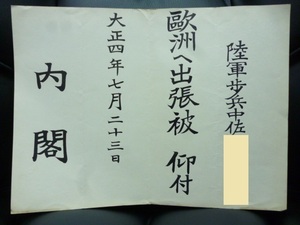 陸軍歩兵中佐
歐洲へ出張被 仰付
大正四年七月二十三日
内閣